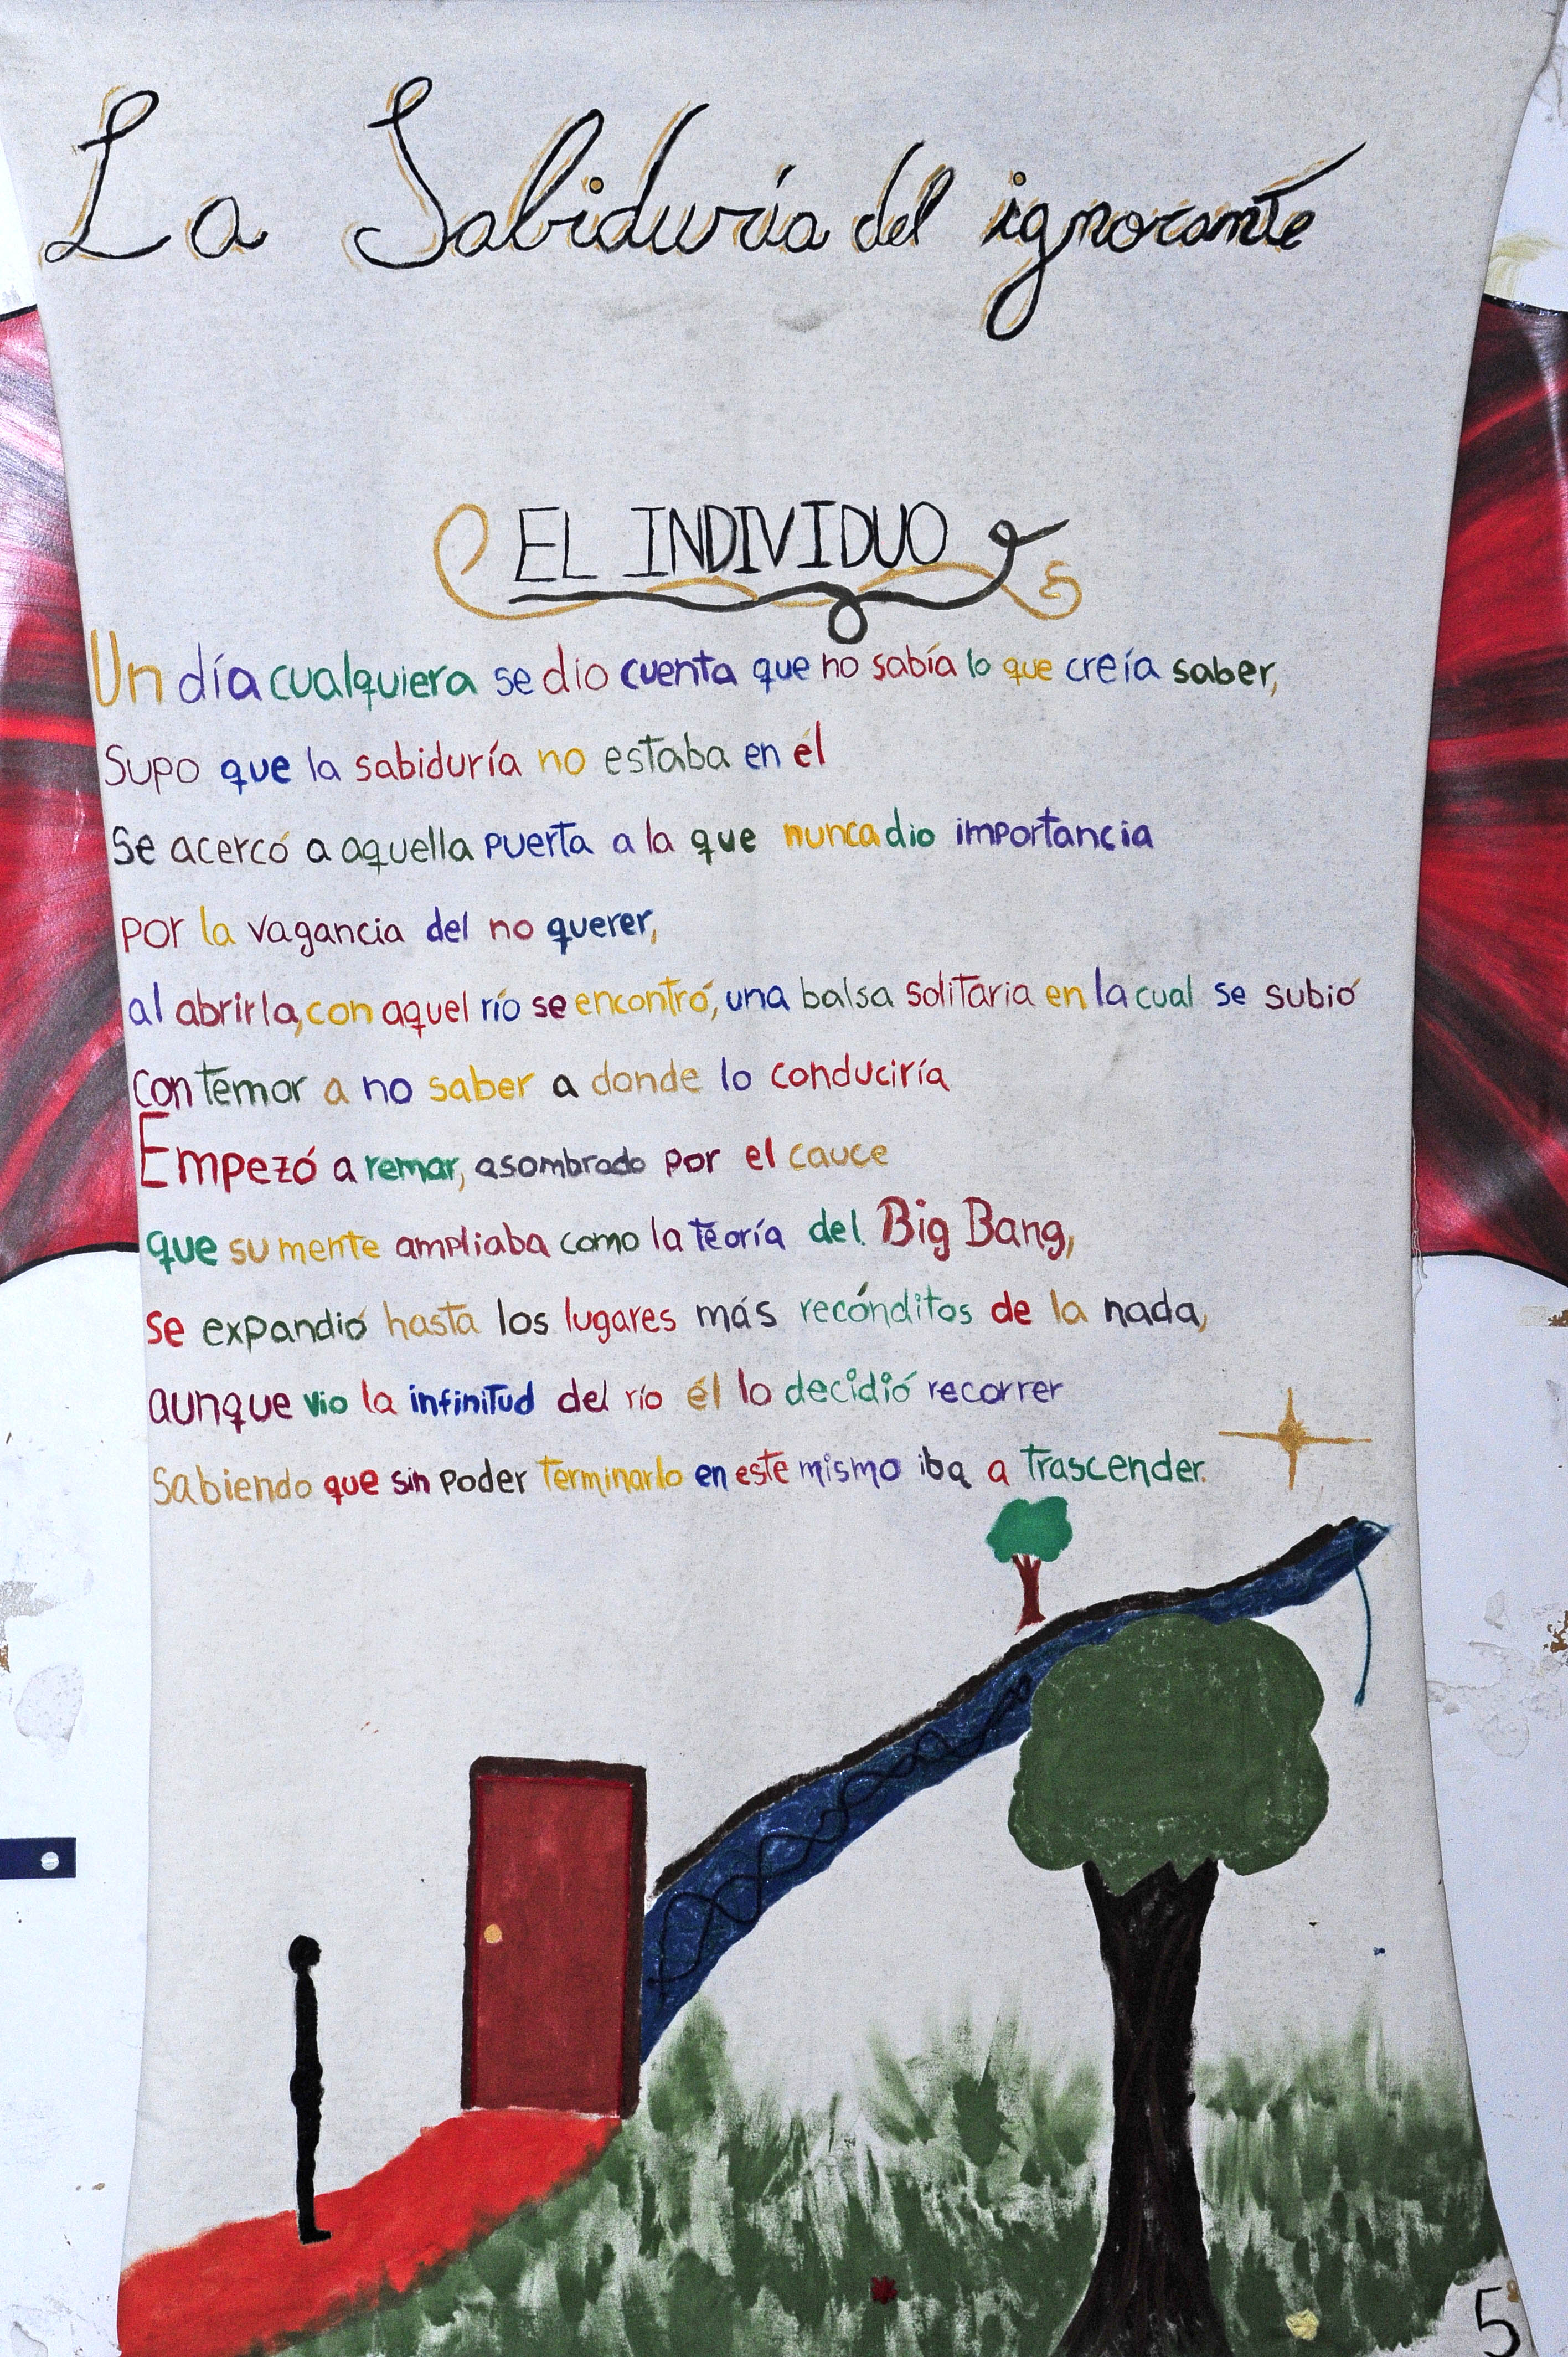 La Sabiduría del ignorante
EL INDIVIDUO
Un día cualquiera se dio cuenta que no sabía lo que creía saber,
Supo que la sabiduría no estaba en él
Se acercó a aquella puerta a la que nunca dio importancia
por la vagancia del no querer,
al abrirla, con aquel río se encontró, una balsa solitaria en la cual se subió
con temor a no saber a donde lo conduciría
Empezó a remar, asombrado por el cauce
que su mente ampliaba como la teoría del Big Bang,
se expandió hasta los lugares más recónditos de la nada,
aunque vio la infinitud del río él lo decidió recorrer
Sabiendo que sin poder terminarlo en este mismo iba a trascender.
5º